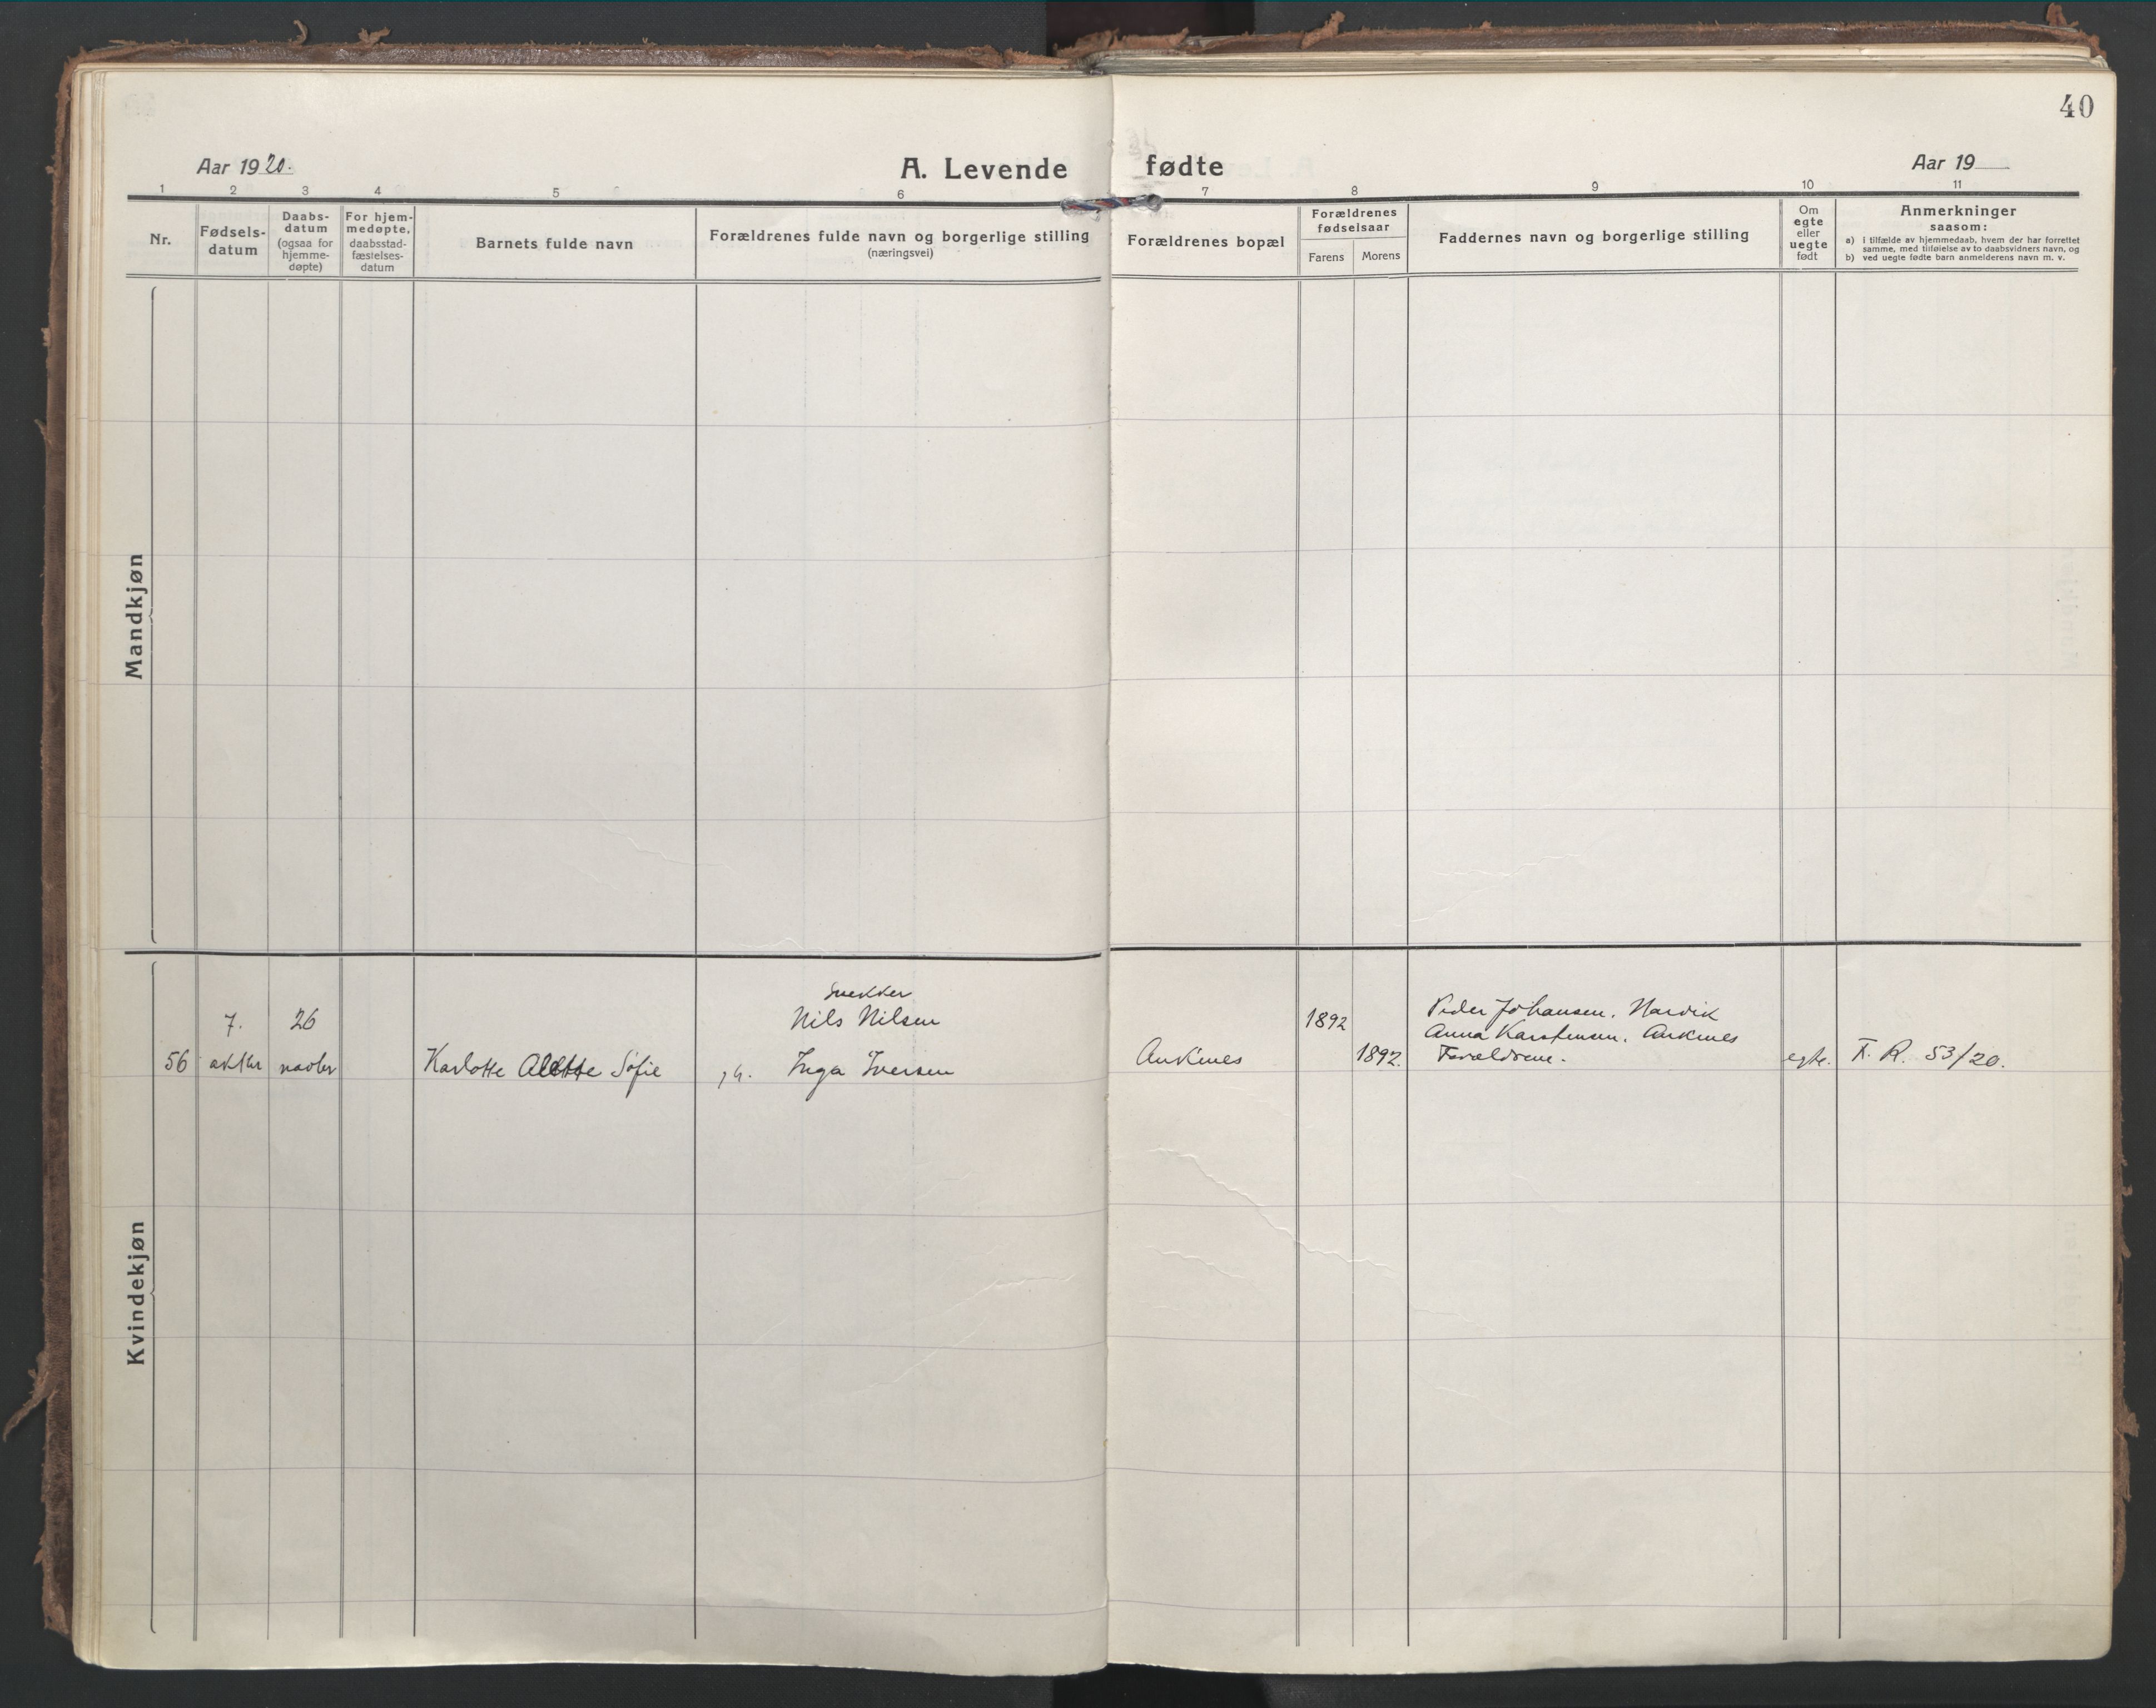 40
Aar 1920.
A. Levende fødte
Aar 19
1 2 3 4 5 6 7 8 9 10 11
Nr.
Fødsels-
datum
Daabs-
datum
(ogsaa for
hjemme-
døpte)
For hjem-
medøpte,
daabsstad-
fæstelses-
datum
Barnets fulde navn
Forældrenes fulde navn og borgerlige stilling
(næringsvei)
Forældrenes bopæl
Forældrenes
fødselsaar
Farens Morens
Faddernes navn og borgerlige stilling
Om
egte
eller
uegte
født
Anmerkninger
saasom:
a) i tilfælde av hjemmedaab, hvem der har forrettet
samme, med tilføielse av to daabsvidners navn, og
b) ved uegte fødte barn anmelderens navn m. v.
Mandkjøn
Kvindekjøn
Snekker
7. 26 Nils Nilsen 1892 Peder Johansen, Narvik
Anna Karstensen, Ankenes
56 oktbr novbr Karlotte Alette Sofie Inga Iversen Ankenes 1892. Forældrene. egte. F. R. 53/20.